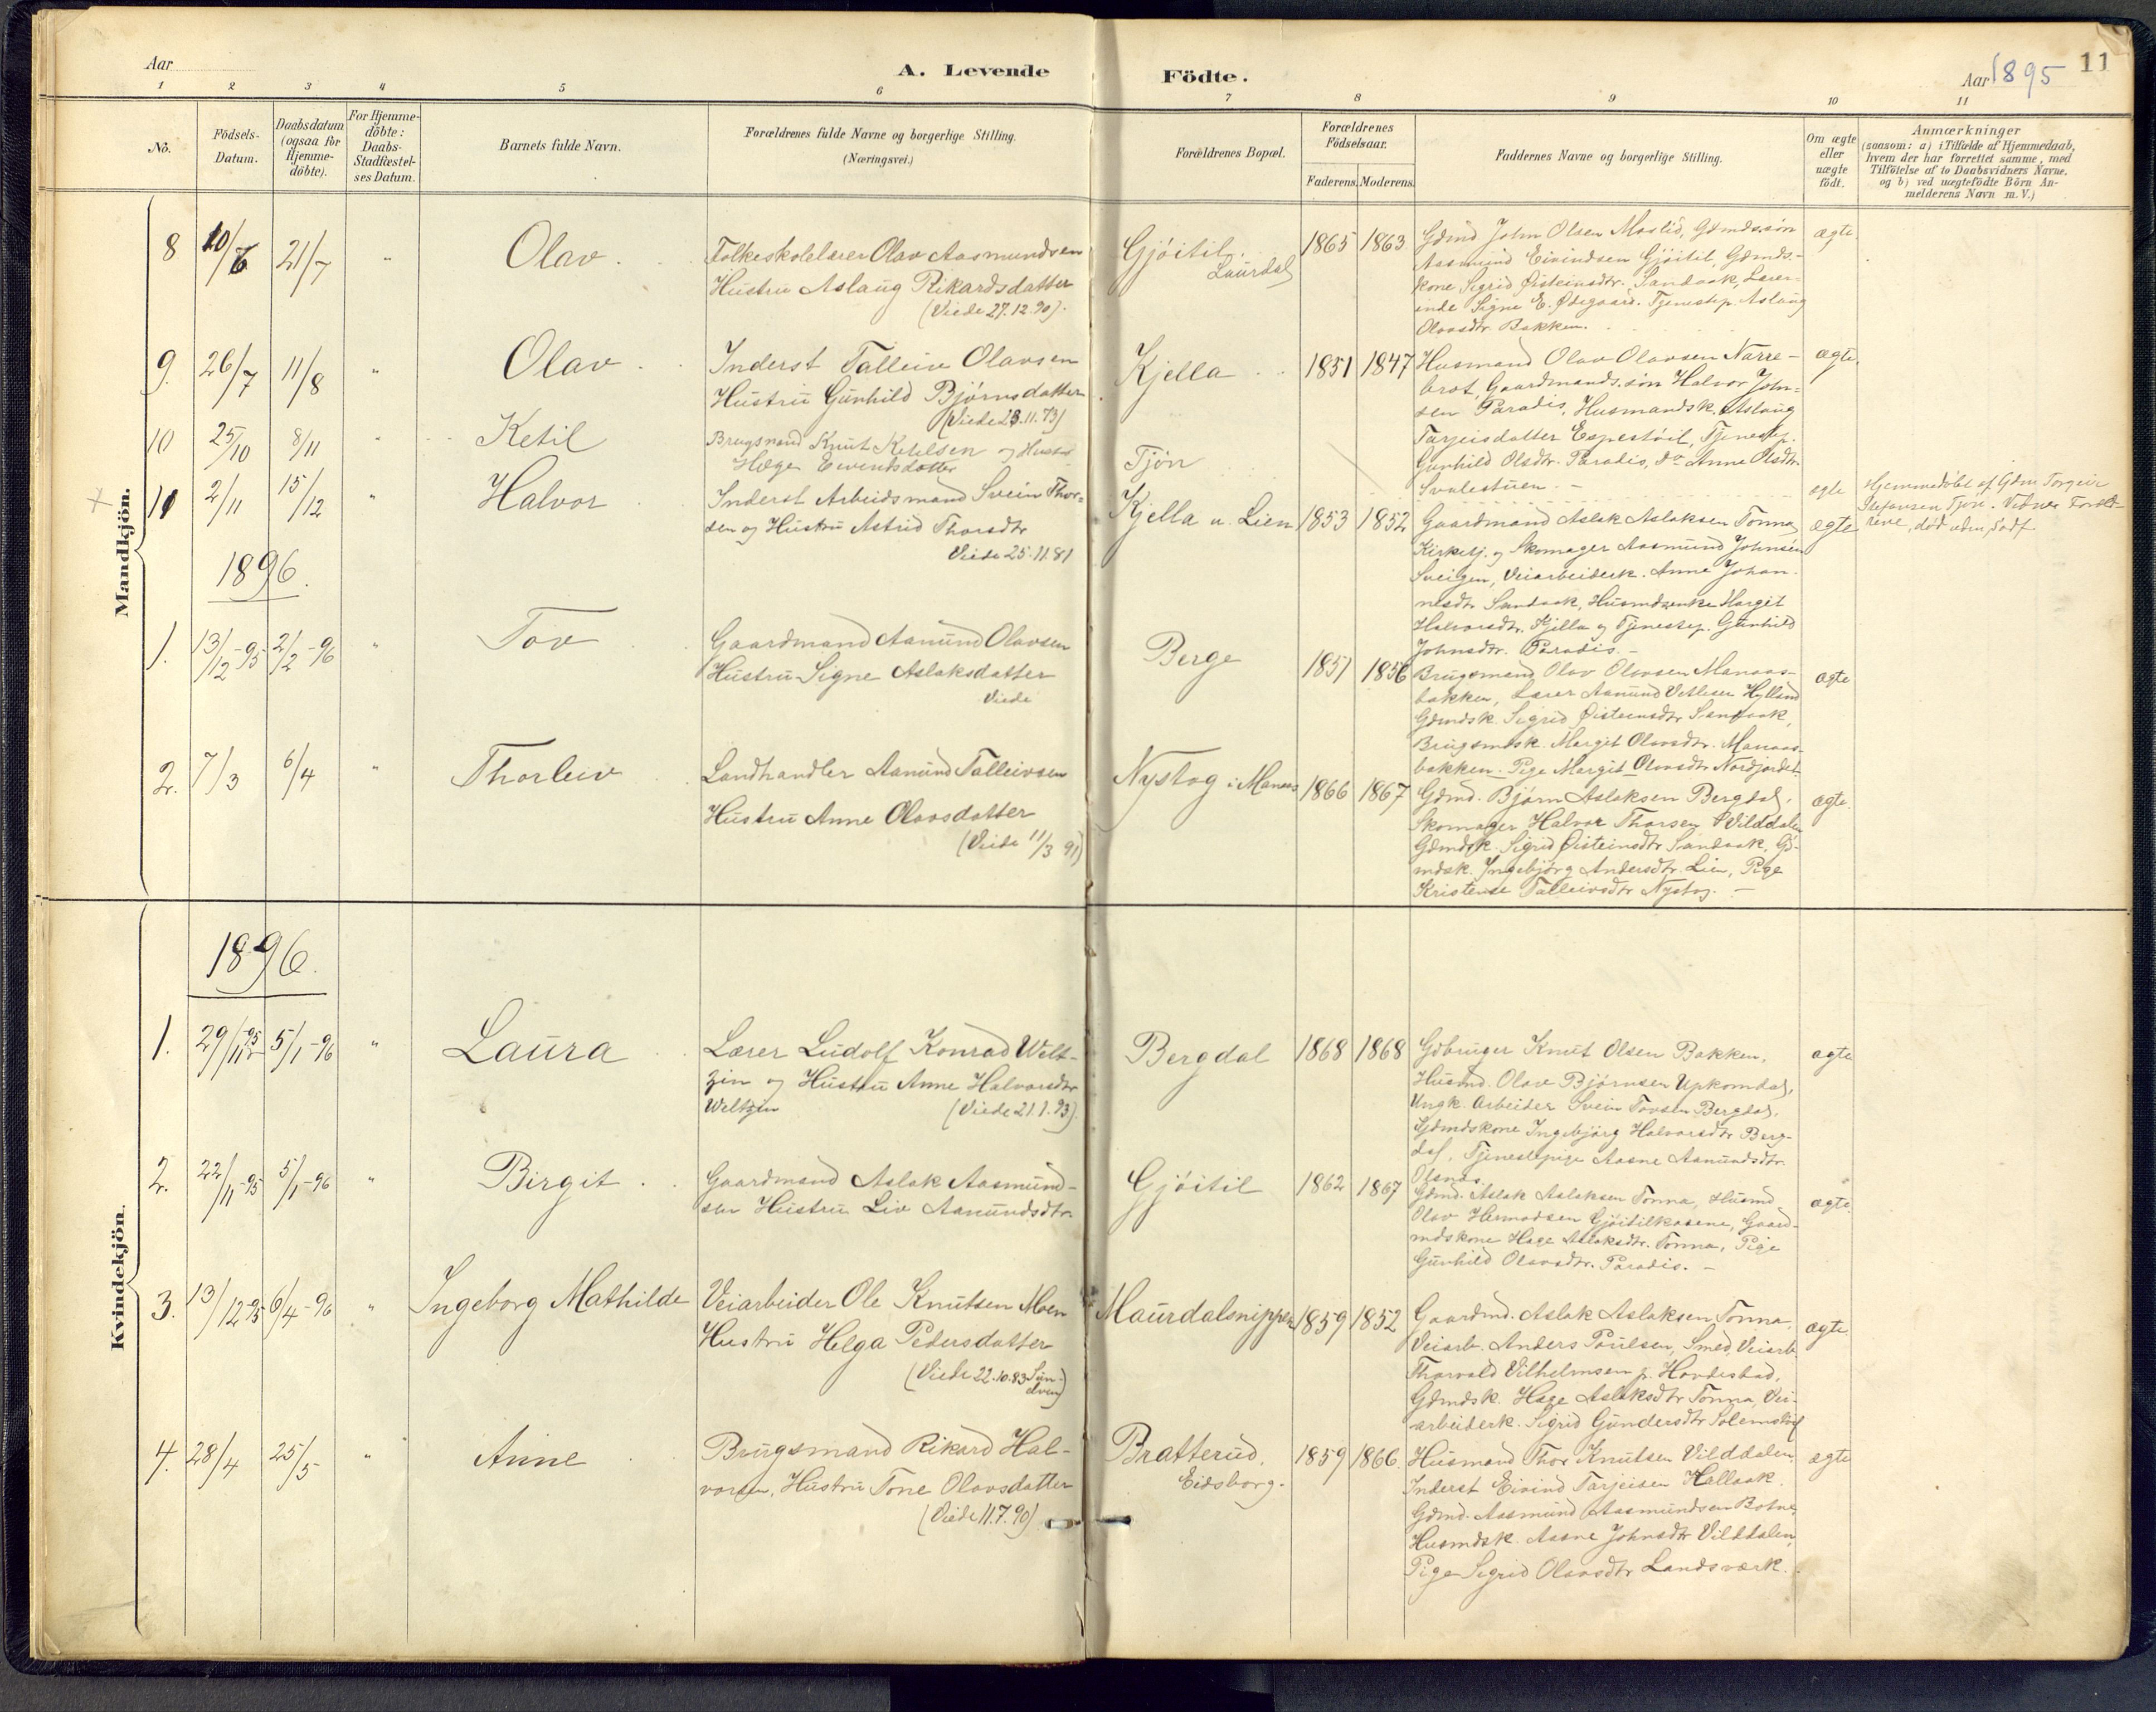 Aar
A. Levende
Födte.
Aar 1895
11
1 2 3 4 5 6 7 8 9 10 11
No.
Födsels-Datum.
Daabsdatum (ogsaa for Hjemme-döbte).
For Hjemme-döbte: Daabs-Stadfæstel-ses Datum.
Barnets fulde Navn.
Forældrenes fulde Navne og borgerlige Stilling.
(Næringsvei.)
Forældrenes Bopæl.
Forældrenes Födselsaar.
Faderens. Moderens.
Faddernes Navne og borgerlige Stilling.
Om ægte eller uægte födt.
Anmærkninger
(saasom: a) i Tilfælde af Hjemmedaab,
hvem der har forrettet samme, med
Tilföielse af to Daabsvidners Navne,
og b) ved uægtefödte Börn An-
melderens Navn m. V.)
Mandkjön.
8 10/6 21/7 " Olav
Folkeskolelærer Olav Aasmundsen
Hustru Aslaug Rikardsdatter
(Viede 27.12.90).
Gjöitil
Laurdal
1865 1863
Gdmd John Olsen Moslid, Gdmdssön
Aasmund Eivindsen Gjöitil, Gdmds-
kone Sigrid Øisteinsdtr. Sandaak, Lærer-
inde Signe E. Ødegaard. Tjenestep. Aslaug
Olavsdtr. Bakken.
ægte.
9. 26/7 11/8 " Olav
Inderst Talleiv Olavsen
Hustru Gunhild Björnsdatter
(Viede 23.11.73)
Kjella
1851 1847
Husmand Olav Olavsen Narre-
brot, Gaardmands.sön Halvor John-
sen Paradis, Husmandsk. Aslaug
Tarjeisdatter Espestöil, Tjenestep.
Gunhild Olsdtr. Paradis, do Anne Olsdtr.
Svalestuen. -
ægte.
10 25/10 8/11 " Ketil
Brugsmand Knut Ketilsen og Hustru
Hæge Eivindsdatter
Tjön
ægte
Hjemmedöbt af Gdm Torgeir
Stefansen Tjön. Vidner Foræld-
rene, död uden Daab
11 2/11 15/12 " Halvor
Inderst Arbeidsmand Svein Thor-
sen og Hustru Astrid Thorsdtr
Viede 25.11.81
Kjella u. Lien
1853 1852
Gaardmand Aslak Aslaksen Tonna,
Kirkesj. og Skomager Aasmund Johnsen
Sveigen, Veiarbeiderk. Anne Johan-
nesdtr Sandaak, Husmdsenke Margit
Halvorsdtr. Kjella og Tjenestep. Gunhild
Johnsdtr. Paradis. -
ægte
1896.
1. 13/12-95 2/2-96 " Tov
Gaardmand Aanund Olavsen
Hustru Signe Aslaksdatter
Viede
Berge
1851 1856
Brugsmand Olav Olavsen Manaas-
bakken, Lærer Aanund Vetlesen Hylland
Gdmdsk. Sigrid Øisteinsdtr Sandaak,
Brugsmdsk. Margit Olavsdtr. Manaas-
bakken. Pige Margit Olavsdtr Nordjordet.
ægte
2. 7/3 6/4 " Thorleiv
Landhandler Aanund Talleivsen
Hustru Anne Olavsdatter
(Viede 11/3 91)
Nystog i Manaas
1866 1867
Gdmd. Björn Aslaksen Bergdal,
Skomager Halvor Thorsen Vilddalen
Gdmdsk. Sigrid Øisteinsdtr Sandaak, Gd-
mdsk. Ingebjörg Andersdtr. Lien, Pige
Kristense Talleivsdtr Nystog. -
ægte.
Kvindekjön.
1896.
1. 29/11-95 5/1-96 " Laura
Lærer Ludolf Konrad Welt-
zin og Hustru Anne Halvorsdtr
Weltzin (Viede 21.1.93).
Bergdal
1868 1868
Gdbruger Knut Olsen Bakken,
Husmd. Olav Björnsen Upkomdal,
Ungk. Arbeider Svein Tovsen Bergdal,
Gdmdskone Ingebjörg Halvorsdtr Berg-
dal, Tjenestepige Aasne Aanundsdtr.
Olsnes.
ægte
2. 22/11-95 5/1-96 " Birgit
Gaardmand Aslak Aasmund-
sen Hustru Liv Aanundsdtr.
Gjöitil
1862 1867
Gdmd. Aslak Aslaksen Tonna, Husmd
Olav Hermodsen Gjöitilkaasene, Gaard-
mdskone Hæge Aslaksdtr. Tonna, Pige
Gunhild Olavsdtr. Paradis. -
ægte.
3. 13/12-95 6/4-96 " Ingeborg Mathilde
Veiarbeider Ole Knutsen Moen
Hustru Helga Pedersdatter
(Viede 22.10.83 )
Maurdalsnippen
1859 1852
Gaardmd. Aslak Aslaksen Tonna,
Veiarb. Anders Paulsen, Smed, Veiarb.
Thorvald Vilhelmsen p. Hovdestad,
Gdmdsk. Hæge Aslaksdtr Tonna, Vei-
arbeiderk. Sigrid Gundersdtr
ægte
4. 28/4 25/5 " Anne
Brugsmand Rikard Hal-
vorsen, Hustru Tone Olavsdatter
(Viede 11.7.90)
Bratterud,
Eidsborg.
1859 1866
Husmand Thor Knutsen Vilddalen,
Inderst Eivind Tarjeisen Hallaak.
Gdmd. Aasmund Aasmundsen Botne,
Husmdsk. Aasne Johnsdtr Vilddalen,
Pige Sigrid Olavsdtr Landsværk.
ægte